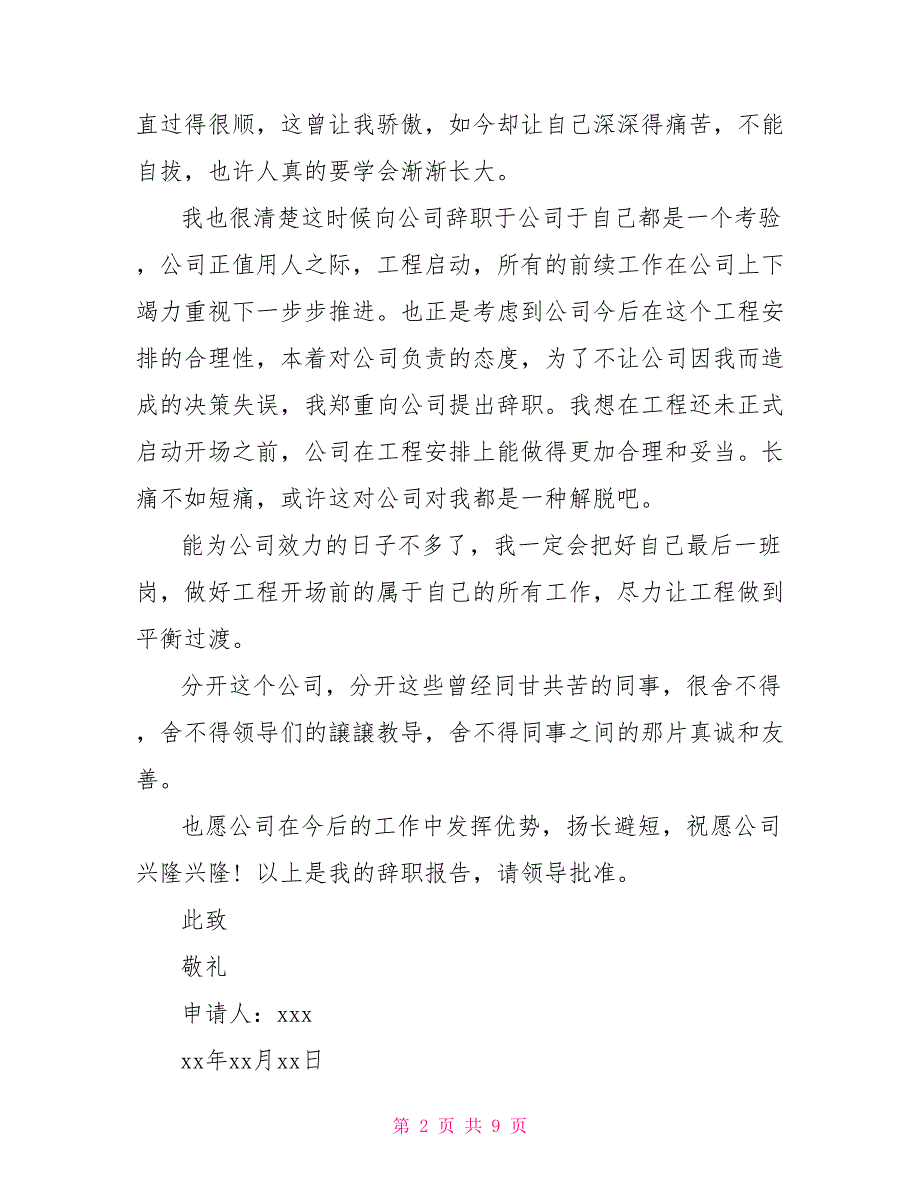 直过得很顺，这曾让我骄傲，如今却让自己深深得痛苦，不能
自拔，也许人真的要学会渐渐长大。
我也很清楚这时候向公司辞职于公司于自己都是一个考验
，公司正值用人之际，工程启动，所有的前续工作在公司上下
竭力重视下一步步推进。也正是考虑到公司今后在这个工程安
排的合理性，本着对公司负责的态度，为了不让公司因我而造
成的决策失误，我郑重向公司提出辞职。我想在工程还未正式
启动开场之前，公司在工程安排上能做得更加合理和妥当。长
痛不如短痛，或许这对公司对我都是一种解脱吧。
能为公司效力的日子不多了，我一定会把好自己最后一班
岗，做好工程开场前的属于自己的所有工作，尽力让工程做到
平衡过渡。
分开这个公司，分开这些曾经同甘共苦的同事，很舍不得
，舍不得领导们的譲譲教导，舍不得同事之间的那片真诚和友
善。
也愿公司在今后的工作中发挥优势，扬长避短，祝愿公司
兴隆兴隆! 以上是我的辞职报告，请领导批准。
此致
敬礼
申请人：xxx
xx年xx月xx日
第 2 页 共 9 页